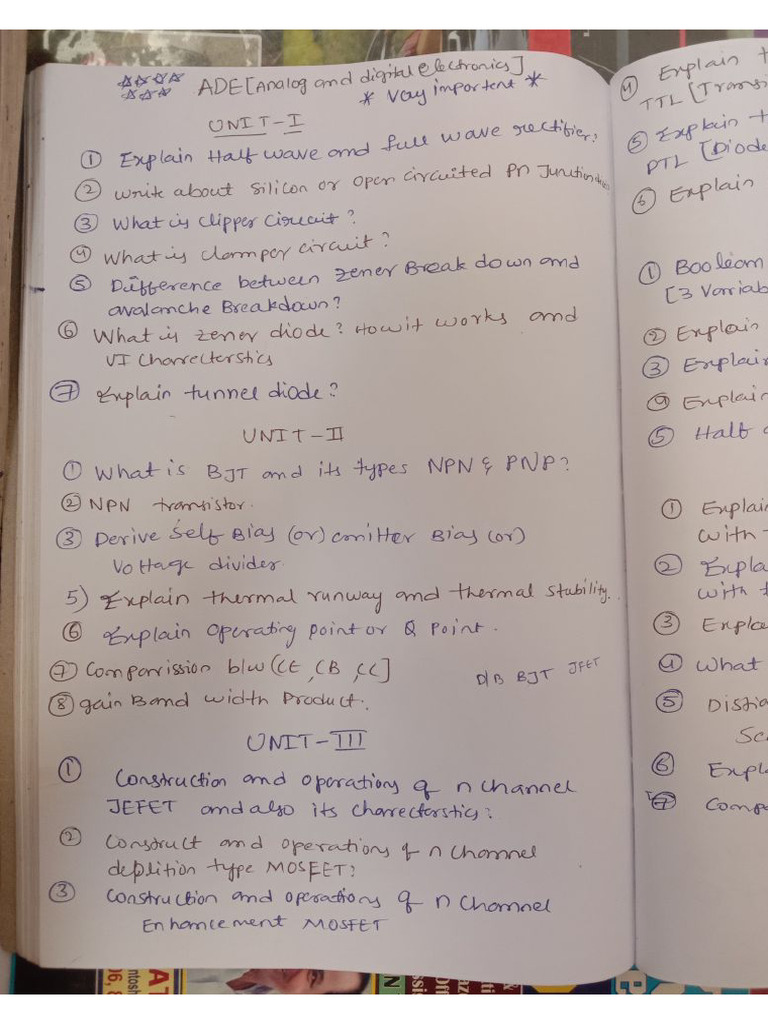 ☆☆☆☆ ADE [Analog and digital electronics]
☆☆☆ * Very important *
UNIT-I
① Explain Half wave and full wave rectifier?
② write about silicon or open circuited PN Junction
③ What is clipper circuit?
④ What is clamper circuit?
⑤ Difference between zener Break down and
avalanche Breakdown?
⑥ What is zener diode? How it works and
VI Charecterstics
⑦ Explain tunnel diode?
UNIT-II
① What is BJT and its types NPN & PNP?
② NPN transistor.
③ Derive Self Bias (or) emitter Bias (or)
Voltage divider.
5) Explain thermal runway and thermal stability.
⑥ Explain operating point or Q Point.
⑦ Comparrission b/w (CE, CB, CC]
D/B BJT JFET
⑧ gain Band width Product.
UNIT-III
① Construction and operations of n channel
JEFET and also its charecterstics?
② Construct and operations of n channel
deplition type MOSFET?
③ Construction and operations of n channel
Enhancement MOSFET
④ Explain
TTL [Transi
⑤ Explain
PTL [Diode
⑥ Explain
① Boolean
[3 Variab
② Explain
③ Explain
④ Explain
⑤ Half
① Explain
with
② Explai
with
③ Expla
④ What
⑤ Disti
Sc
⑥ Expl
⑦ Comp